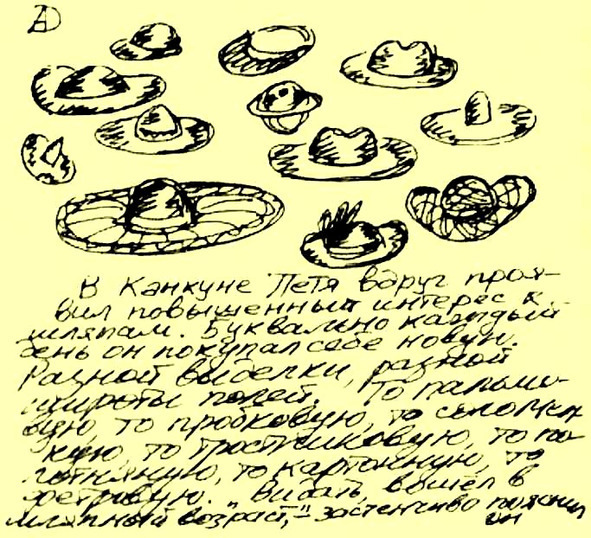 В Канкуне Петя вдруг проя-
вил повышенный интерес к
шляпам. Буквально каждый
день он покупал себе новую.
Разной выделки, разной
широты полей. То пальмо-
вую, то пробковую, то соломен
ную, то тростниковую, то по-
лотняную, то картонную, то
фетровую. "Видать, вышел в
шляпный возраст," - застенчиво пояснил
он